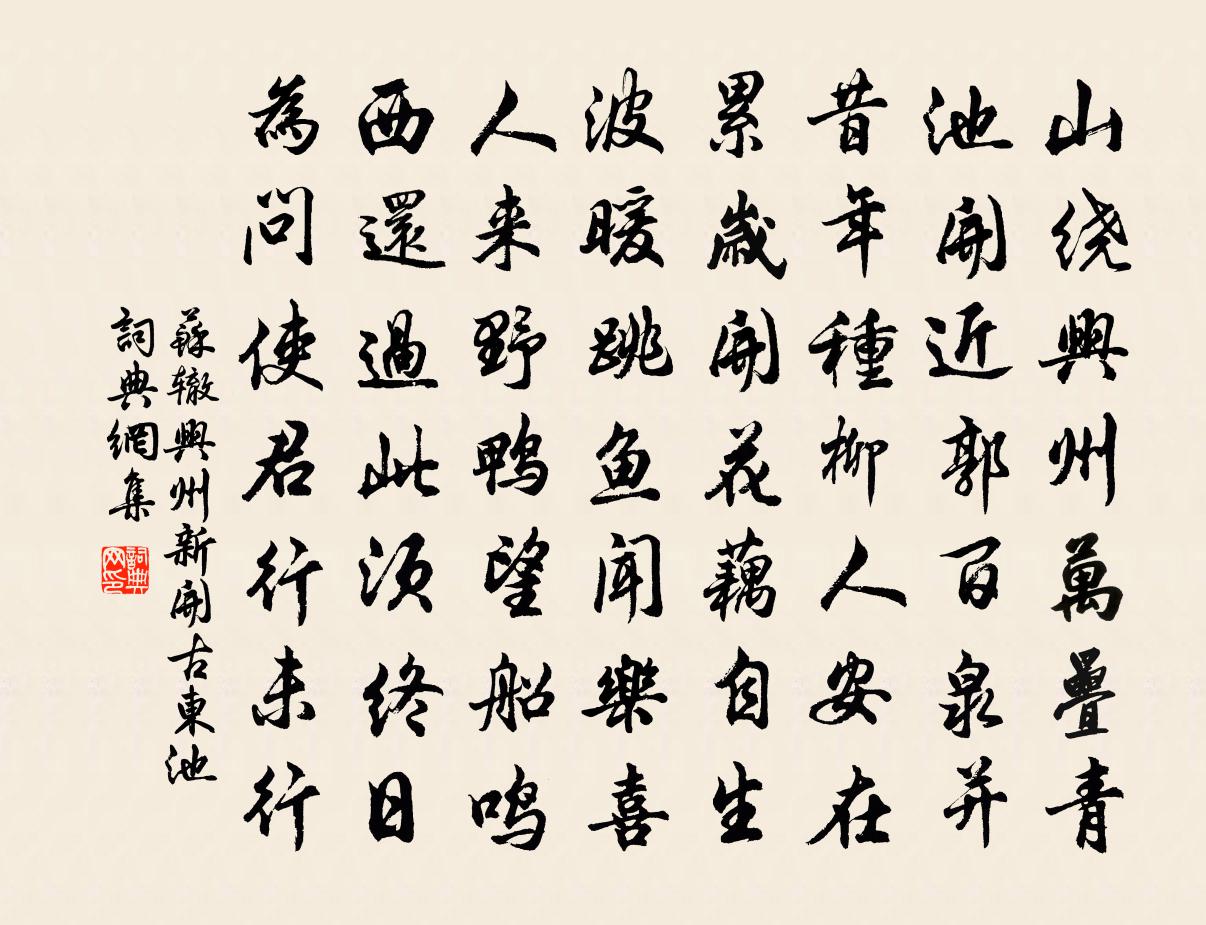 山绕興州萬疊青
池開近郭百泉并
昔年種柳人安在
累歲開花藕自生
波暖跳魚聞樂喜
人来野鴨望船鳴
西還過此須終日
為問使君行未行
蘇辙興州新開古東池
詞典網集
詞典网印